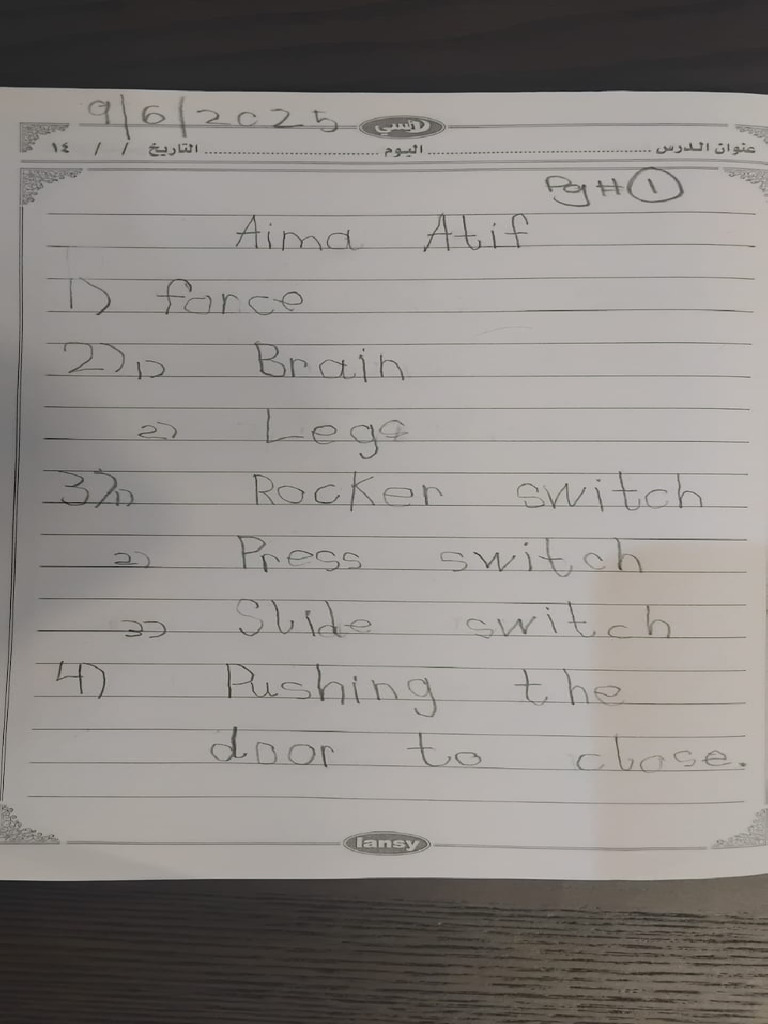 9/6/2025
لانسي
عنوان الدرس ........ اليوم ........ التاريخ / / ١٤
Pg # 1
Aima Atif
1) force
2) 1) Brain
2) Legs
3) 1) Rocker switch
2) Press switch
3) Slide switch
4) Pushing the
door to close.
lansy